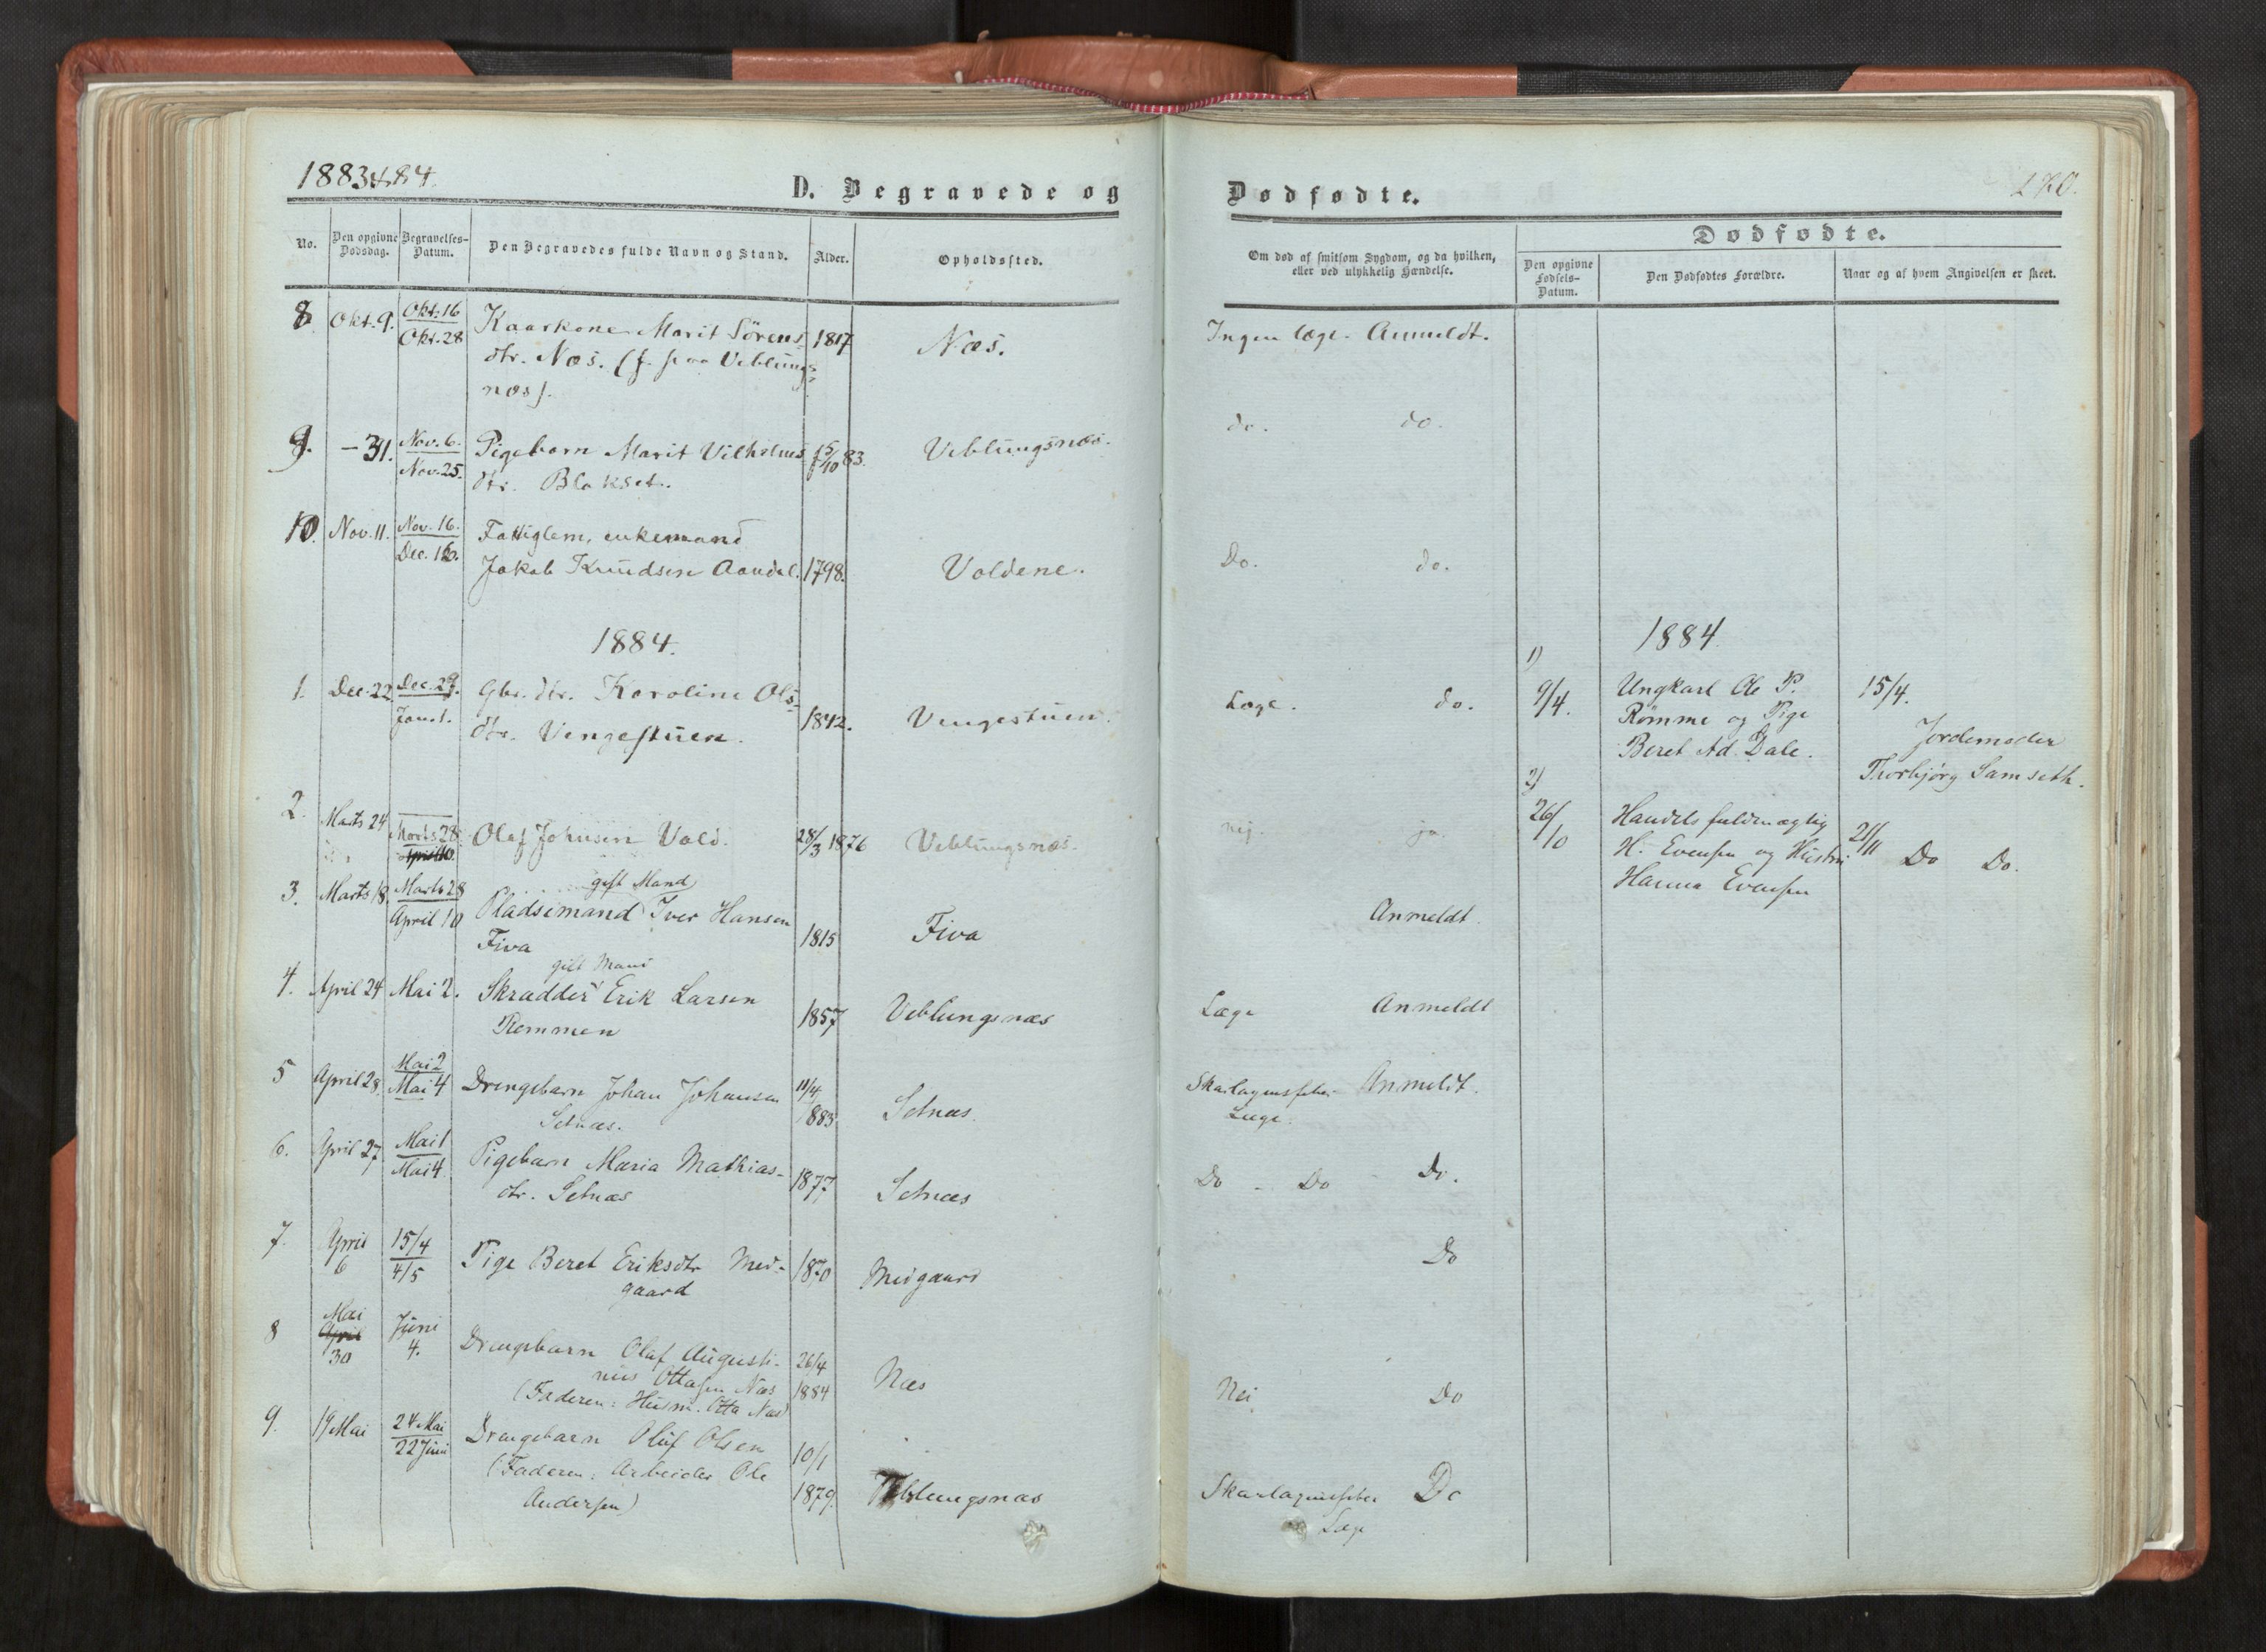 1883 & 84.
D. Begravede og
No.
Den opgivne Dødsdag.
Begravelses-Datum.
Den Begravedes fulde Navn og Stand.
Alder.
Opholdssted.
8. Okt. 9. Okt. 16 Okt. 28 Kaarkone Marit Sörens- 1817 Næs.
dtr. Næs. (f. paa Veblungs-
næs).
9. - 31. Nov. 6. Nov. 25. Pigebarn Marit Vilhelms- 15/10 83. Veblungsnæs.
dtr. Blakset.
10. Nov. 11. Nov. 16. Dec. 16. Fattiglem, enkemand
Jakob Knudsen Aandal. 1798. Voldene.
1884.
1. Dec. 22 Dec. 29. Jan. 1. Gbr. dtr. Karoline Ols-
dtr. Vengestuen. 1842. Vengestuen.
2. Marts 24 Marts 28 April 10 Olaf Johnsen Vold. 28/3 1876 Veblungsnæs.
3. Marts 18. Marts 28 April 10 gift Mand
Pladsemand Iver Hansen
Fiva 1815 Fiva
gift Mand
4. April 24 Mai 2. Skrædder Erik Larsen
Remmen 1857 Veblungsnæs
5 April 28. Mai 2 Mai 4 Drengebarn Johan Johansen 11/4 1883 Setnæs.
Setnæs.
6. April 27 Mai 1 Mai 4. Pigebarn Maria Mathias- 1877 Setnæs
dtr. Setnæs
7. April 6 15/4 4/5 Pige Beret Eriksdtr Med- 1870 Medgaard
gaard
8 Mai April 30 Juni 4. Drengebarn Olaf Augusti- 26/4 1884 Næs
nus Ottasen Næs
(Faderen: Husm. Otta Næs)
9. 19 Mai 24 Mai 22 Juni Drengebarn Oluf Olsen 10/1 1879. Veblungsnæs
(Faderen: Arbeider Ole
Andersen)
Dødfødte.
270.
Om død af smitsom Sygdom, og da hvilken,
eller ved ulykkelig Hændelse.
Dødfødte.
Den opgivne Fødsels-Datum.
Den Dødfødtes Forældre.
Naar og af hvem Angivelsen er skeet.
Ingen læge. Anmeldt.
do. do.
Do. do.
1884
Læge. do.
1)
9/4. Ungkarl Ole P. 15/4.
Rømme og Pige Jordemoder
Beret Ad. Dale. Thorbjørg Samseth.
nej. ja.
2)
26/10 Handelsfuldmægtig 21/11
H. Evensen og Hustru Do Do.
Hanna Evensen
Anmeldt.
Læge Anmeldt
Skarlagensfeber Anmeldt.
Læge.
Do - Do - Do.
Do
Nei Do
Skarlagensfeber Do
Læge